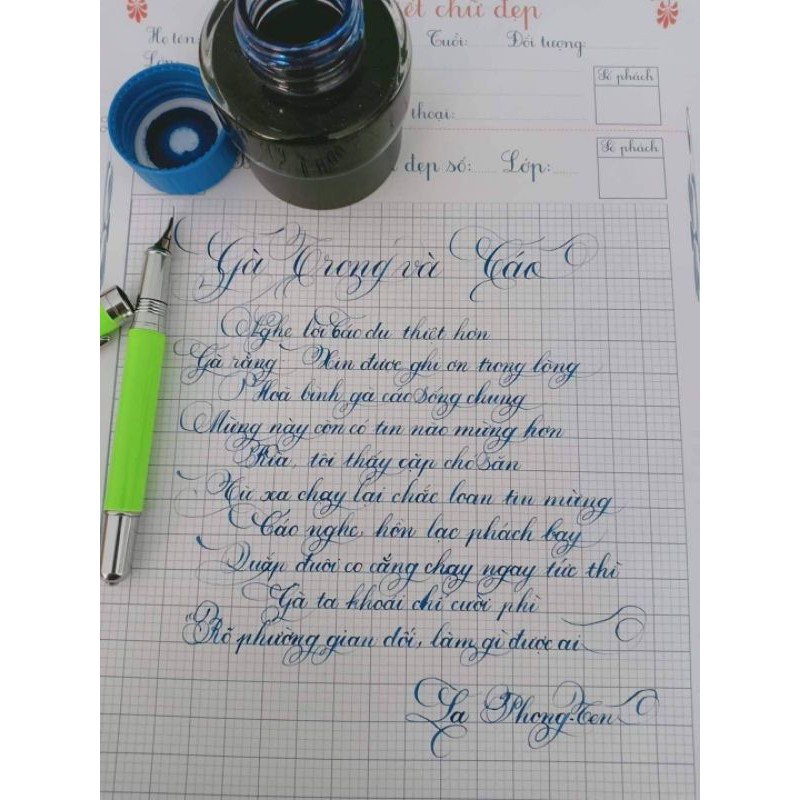 ết chữ đẹp
Họ tên: Tuổi: Đối tượng:
Lớp: Số phách
thoại:
đẹp số: Lớp: Số phách
Gà Trong và Cáo
Nghe lời Cáo dụ thiệt hơn
Gà rằng: Xin được ghi ơn trong lòng
Hoà bình gà cáo sống chung
Mừng này còn có tin nào mừng hơn
Kìa, tôi thấy cặp chó săn
Từ xa chạy lại chắc loan tin mừng
Cáo nghe, hồn lạc phách bay
Quắp đuôi co cẳng chạy ngay tức thì
Gà ta khoái chí cười phì
Rõ phường gian dối, làm gì được ai
La Phong-Ten